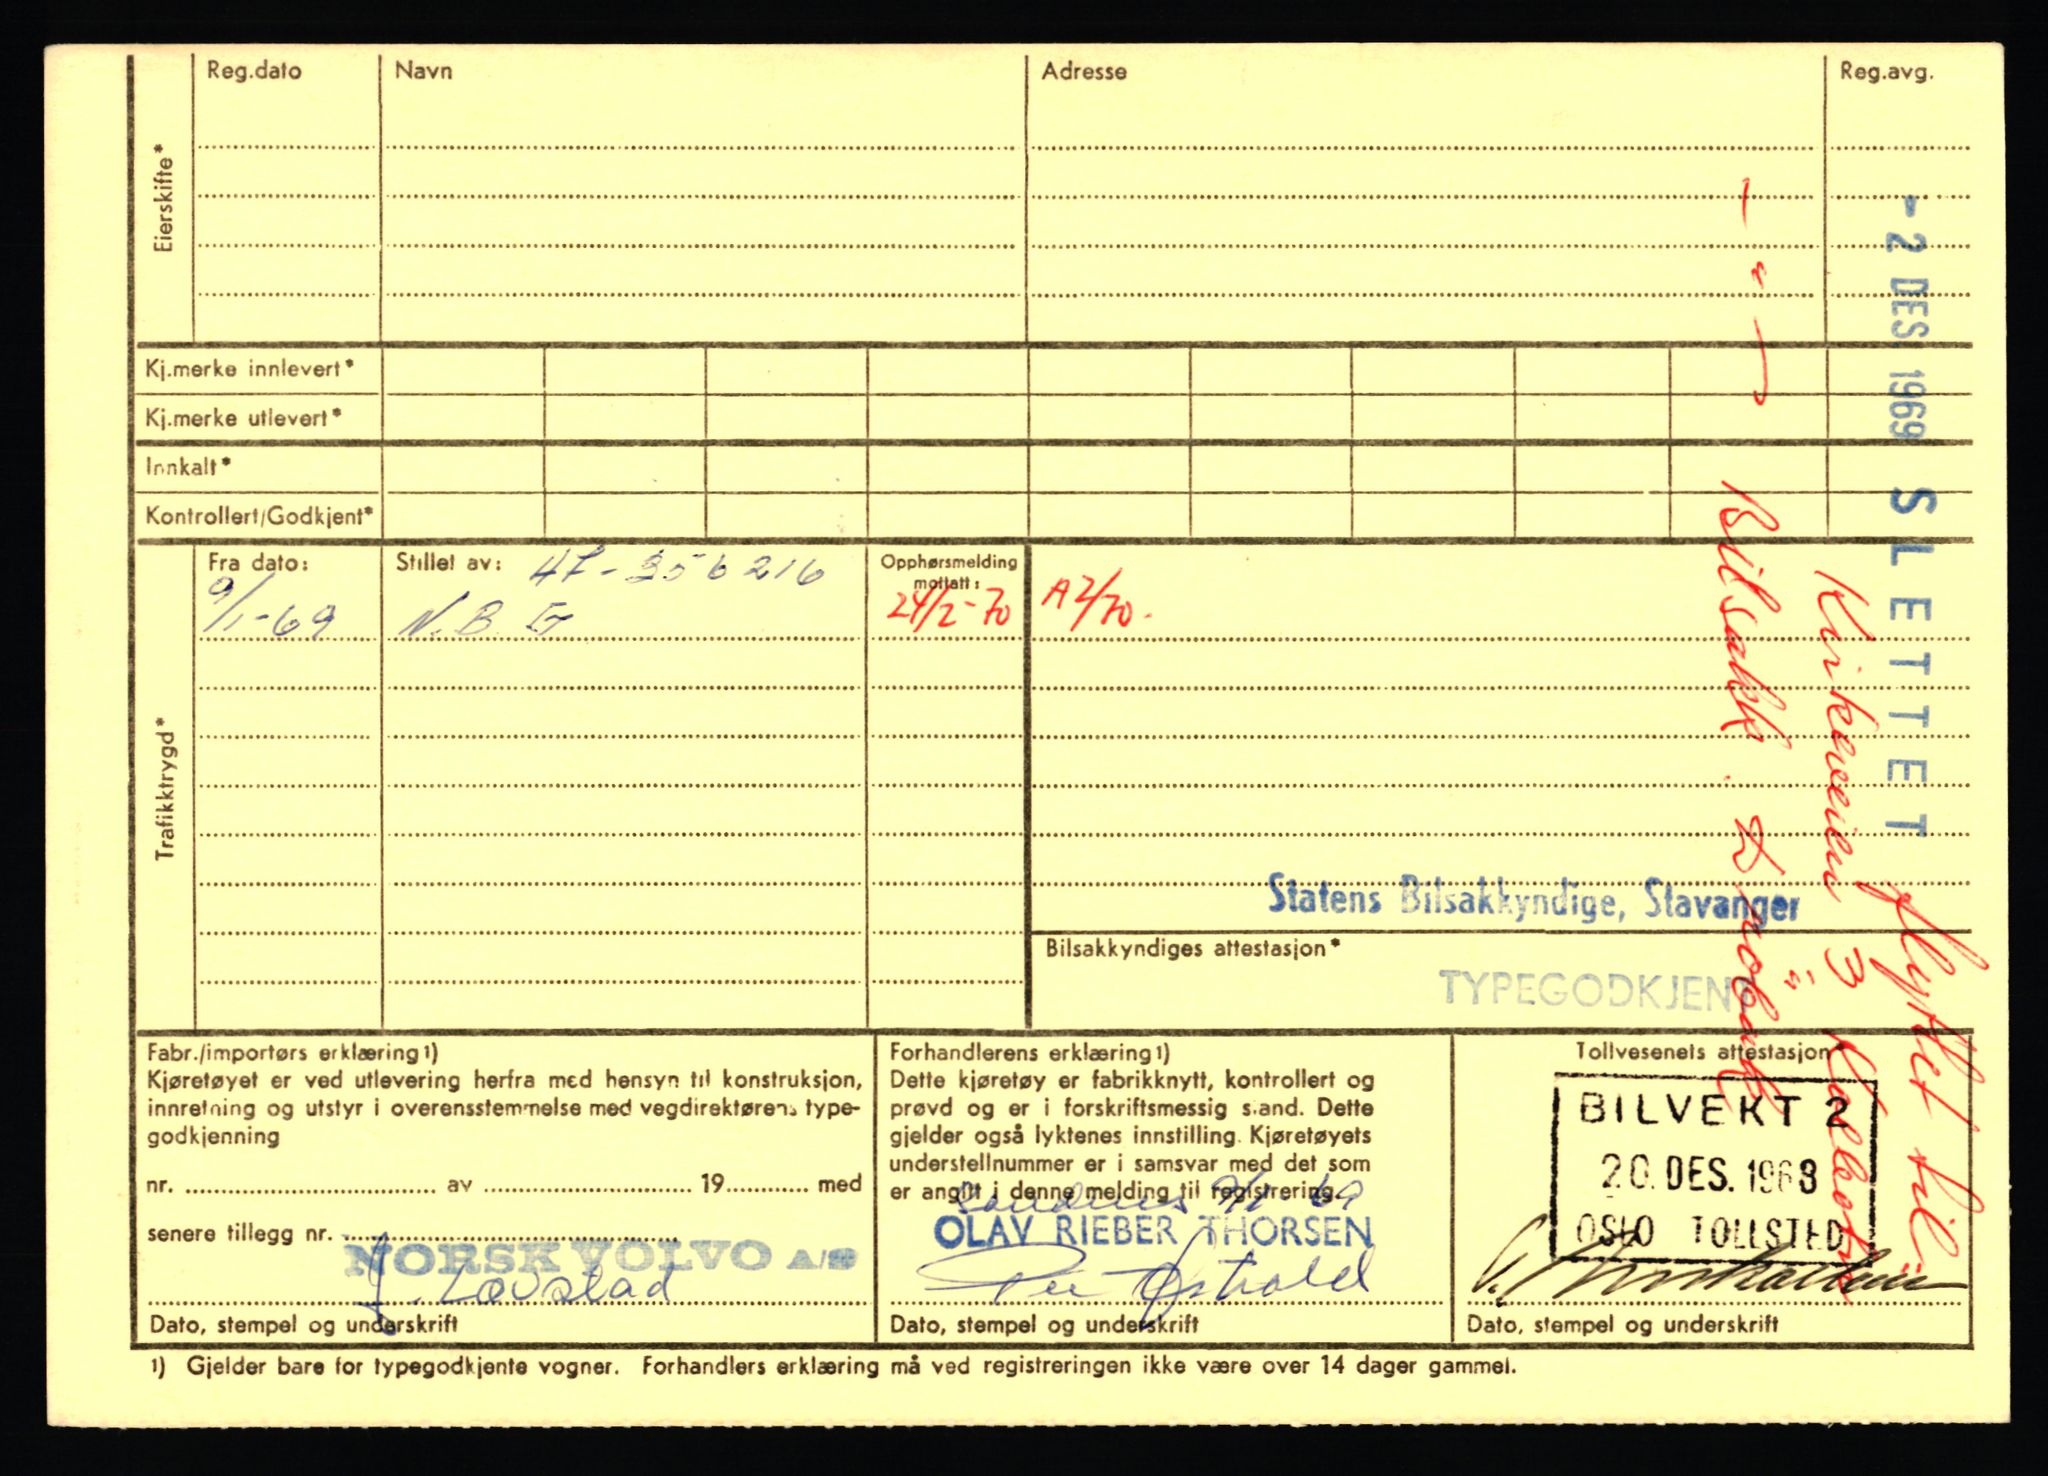 Reg.dato Navn Adresse Reg.avg.
Eierskifte*
Kj.merke innlevert*
Kj.merke utlevert*
Innkalt*
Kontrollert/Godkjent*
Trafikktrygd*
Fra dato: Stillet av: 47-356216 Opphørsmelding mottatt:
9/1-69 N.B. 24/2-70 A2/70.
- 2 DES. 1969 SLETTET
flyttet til
Kirkeveien 3
- " -
Bilsakk. Drøbak
Statens Bilsakkyndige, Stavanger
Bilsakkyndiges attestasjon*
TYPEGODKJENT
Fabr./importørs erklæring 1)
Kjøretøyet er ved utlevering herfra med hensyn til konstruksjon,
innretning og utstyr i overensstemmelse med vegdirektørens type-
godkjenning
nr. av 19 med
senere tillegg nr.
NORSK VOLVO A/S
J. Løvstad
Dato, stempel og underskrift
Forhandlerens erklæring 1)
Dette kjøretøy er fabrikknytt, kontrollert og
prøvd og er i forskriftsmessig stand. Dette
gjelder også lyktenes innstilling. Kjøretøyets
understellnummer er i samsvar med det som
er angitt i denne melding til registrering.
Sandnes 9/1 69
OLAV RIEBER THORSEN
Per Østvold
Dato, stempel og underskrift
Tollvesenets attestasjon*
BILVEKT 2
20. DES. 1968
OSLO TOLLSTED
Dato, stempel og underskrift
1) Gjelder bare for typegodkjente vogner. Forhandlers erklæring må ved registreringen ikke være over 14 dager gammel.